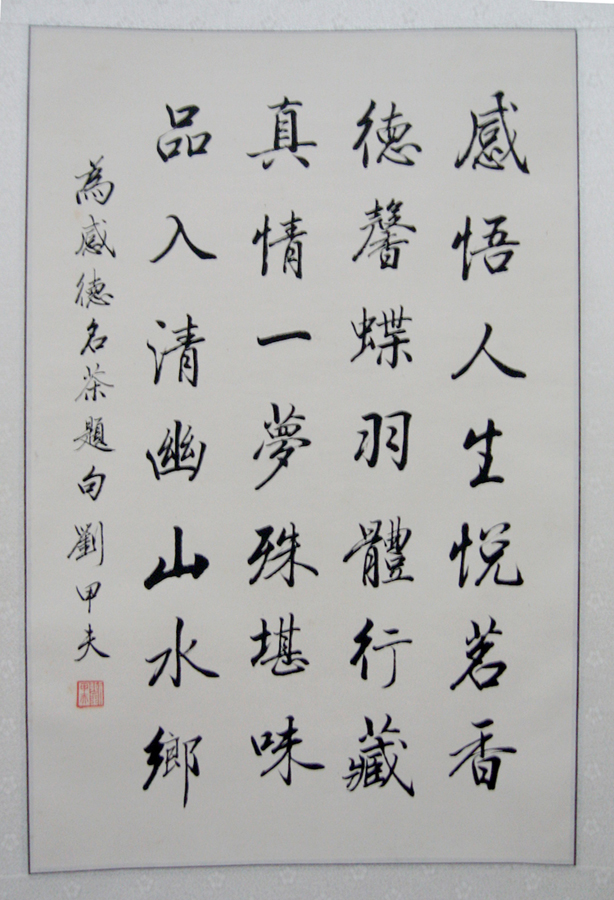 感悟人生悦茗香
德馨蝶羽體行藏
真情一夢殊堪味
品入清幽山水鄉
為感德名茶題句劉甲夫